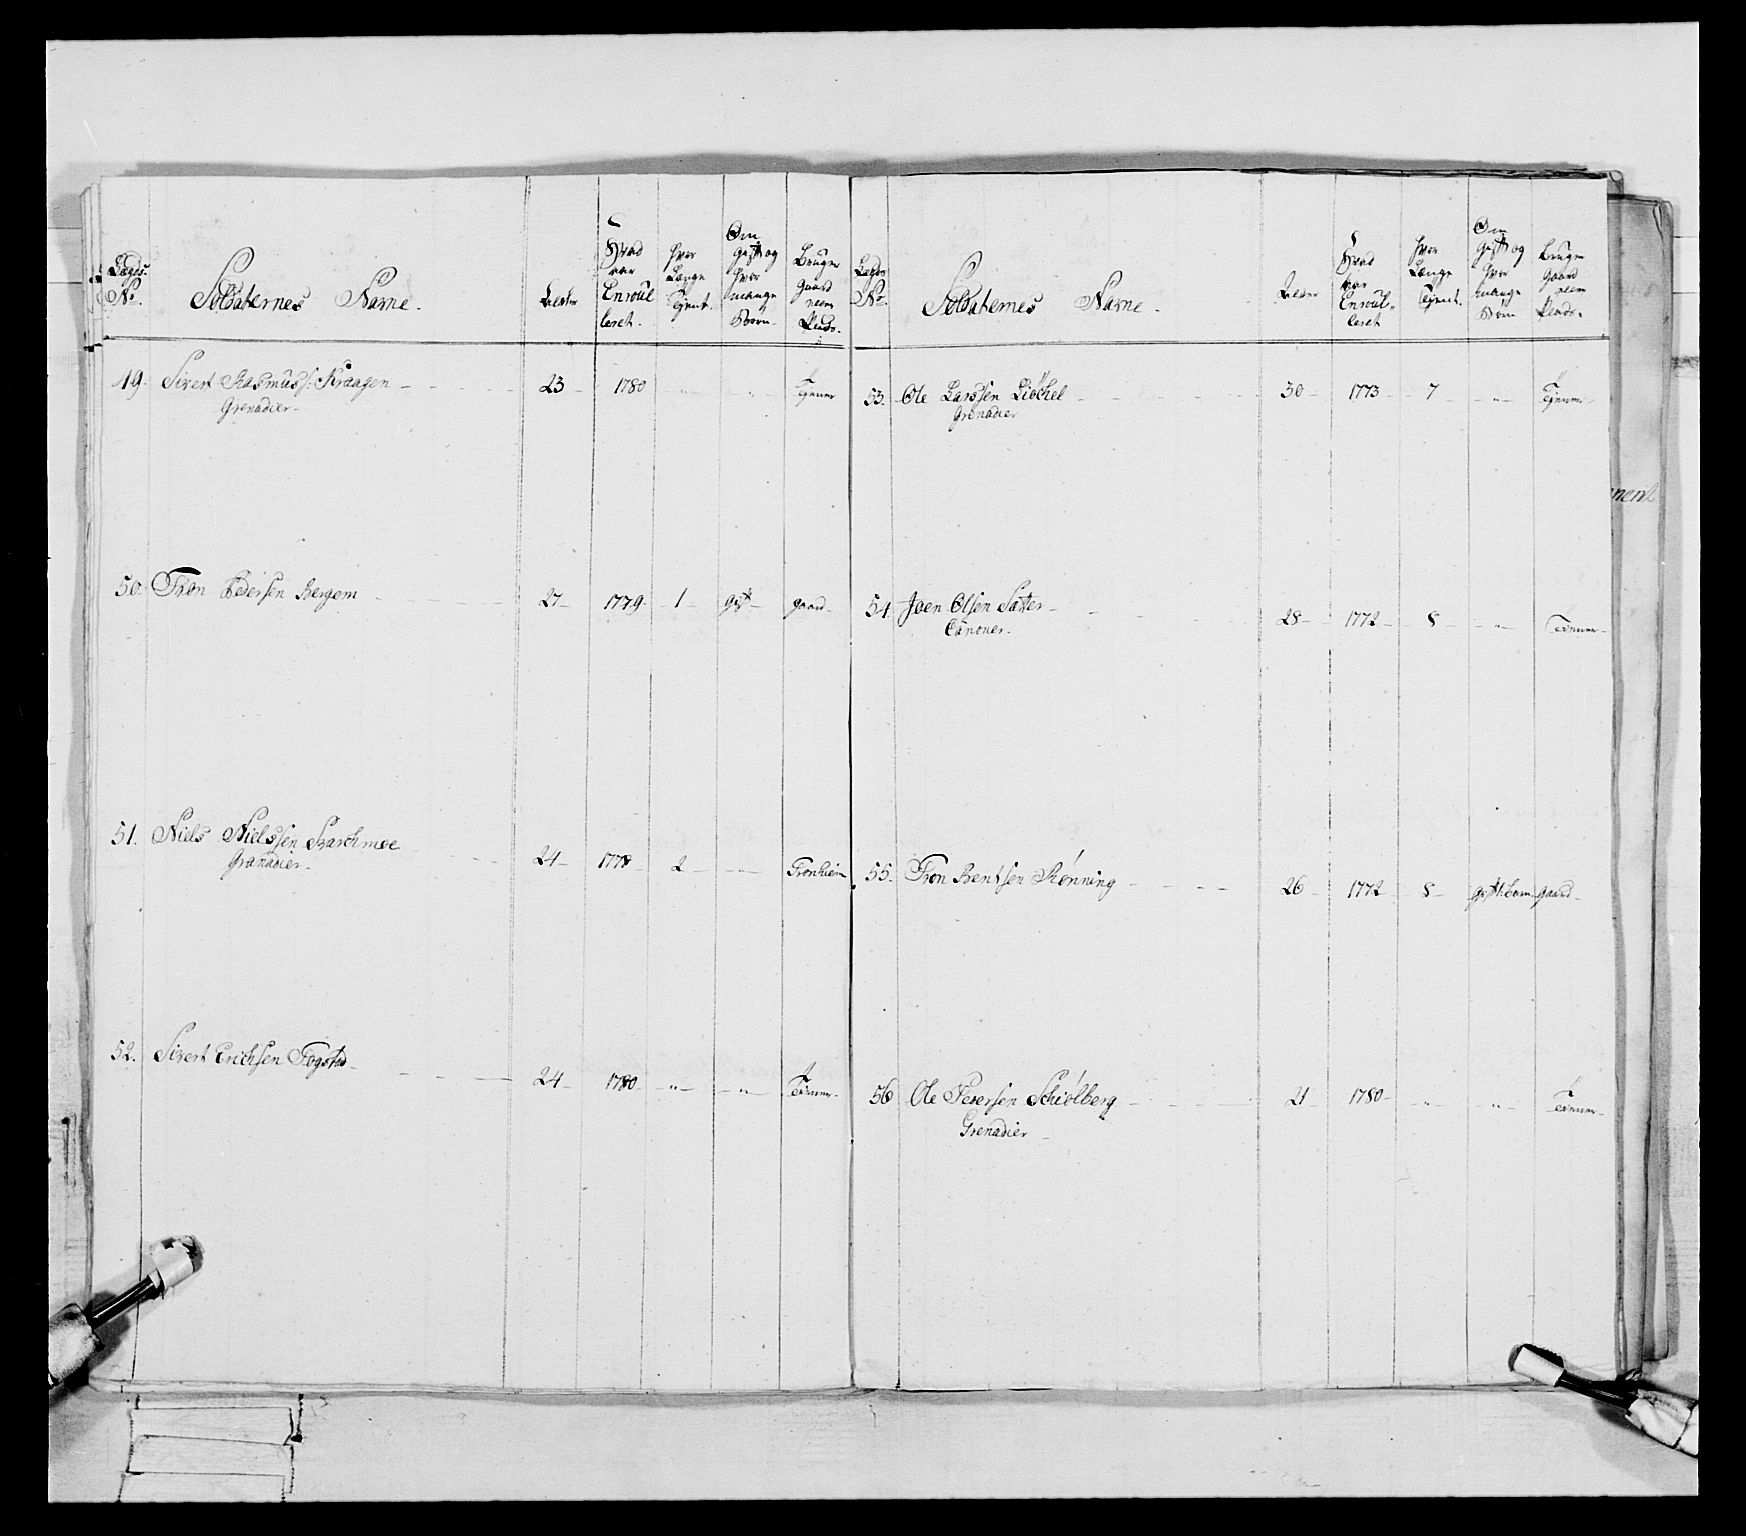 Lægds No.
Soldaternes Navne.
Alder
Hvad aar Enroul leret.
Hvor Længe Tient.
Om Gift og hvor mange Børn.
Bruger Gaard eller Plads.
49. Sivert Rasmuss: Kraagen 23 1780 " " Tjener
Grenadier.
50. Tron Pedersen Bergem 27 1779. 1 Gift gaard
51. Niels Nielssen Starchmoe 24 1778 2 Tronhiem
Granadier.
52. Sivert Erichsen Fogstad 24 1780 " " Tienner
Lægds No.
Soldaternes Navne.
Alder
Hvad aar Enroul- leret
Hvor Længe Tjent.
Om Gift og hvor mange Børn
Bruger Gaard eller Plads.
53. Ole Larssen Liøchel 30 1773 7 " Tjenner
Grenadier
54 Joen Olsen Sæter 28 1772 8 " Tienner
Canoner.
55. Tron Bentsen Rønning 26 1772 8 Gift 1: barn gaard
56 Ole Pedersen Schiølberg 21 1780 " " Tienner
Grenadier
ment